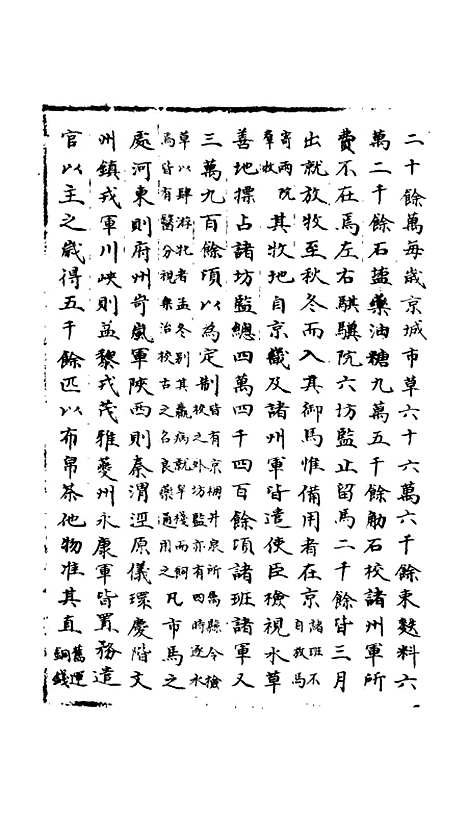 二十餘萬每歲京城市草六十六萬六千餘束麩料六
萬二千餘石鹽藥油糖九萬五千餘觔石校諸州軍所
費不在焉左右騏驥院六坊監止留馬二千餘皆三月
出就放牧至秋冬而入其御馬惟備用者在京諸班不自牧馬
寄兩院羣牧其牧地自京畿及諸州軍皆遣使臣檢視水草
善地標占諸坊監總四萬四千四百餘頃諸班諸軍又
三萬九百餘頃以為定制皆有京棚井泉所屬縣令檢校之外坊監亦有四時逐水
草以肆游牝者孟冬別其羸病就旱棧而飼馬皆有醫分視集治校古之名良藥通用之凡市馬之
處河東則府州岢嵐軍陝西則秦渭涇原儀環慶階文
州鎮戎軍川峽則益黎戎茂雅夔州永康軍皆置務遣
官以主之歲得五千餘匹以布帛茶他物准其直舊運銅錢